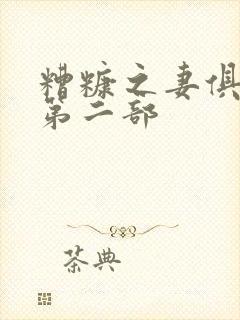 糟糠之妻俱
第二部
茶典